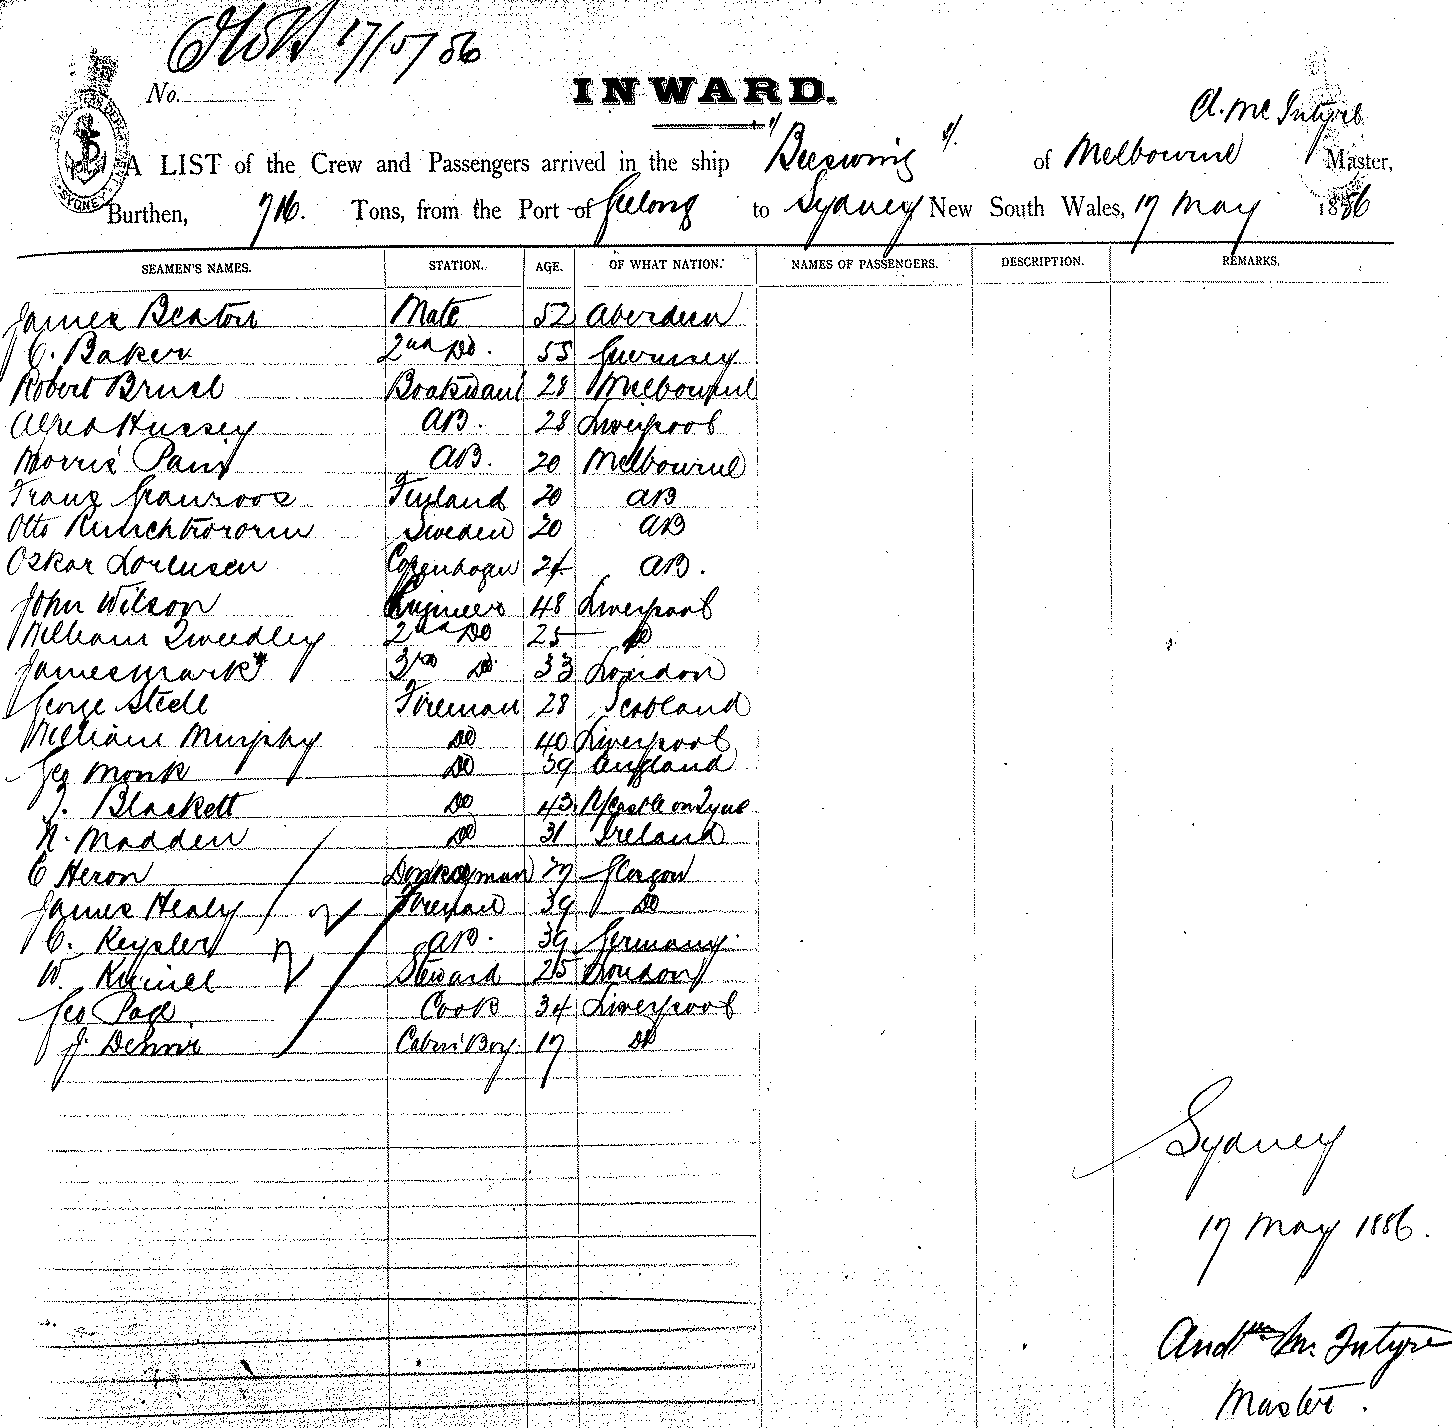 17/5/86
No.
INWARD.
A. Mc Intyre
A LIST of the Crew and Passengers arrived in the ship "Beeswing" of Melbourne Master,
Burthen, 716. Tons, from the Port of Geelong to Sydney New South Wales, 17 May 1886
SEAMEN'S NAMES. STATION. AGE. OF WHAT NATION. NAMES OF PASSENGERS. DESCRIPTION. REMARKS.
James Beaton Mate 52 Aberdeen
C. Baker 2nd Do. 55 Guernsey
Robert Bruce Boatswain 28 Melbourne
Alfred Hussey AB. 28 Liverpool
Morris AB. 20 Melbourne
Franz Granroos Finland 20 AB
Otto Sweden 20 AB
Oskar Lorensen Copenhagen 24 AB.
John Wilson Engineer 48 Liverpool
William Tweedley 2nd Do 25 Do
James Mark 3rd Do 33 London
George Steele Fireman 28 Scotland
William Murphy Do 40 Liverpool
Geo Monk Do 39 England
J. Blackett Do 43 N/castle on Tyne
N. Madden Do 31 Ireland
E Heron Donkeyman 37 Glasgow
James Healy Fireman 39 Do
C. Keysler AB. 39 Germany.
W. Steward 25 London
Geo Page Cook 34 Liverpool
J. Dennis Cabin Boy. 17 Do
Sydney
17 May 1886.
Andw Mc Intyre
Master.